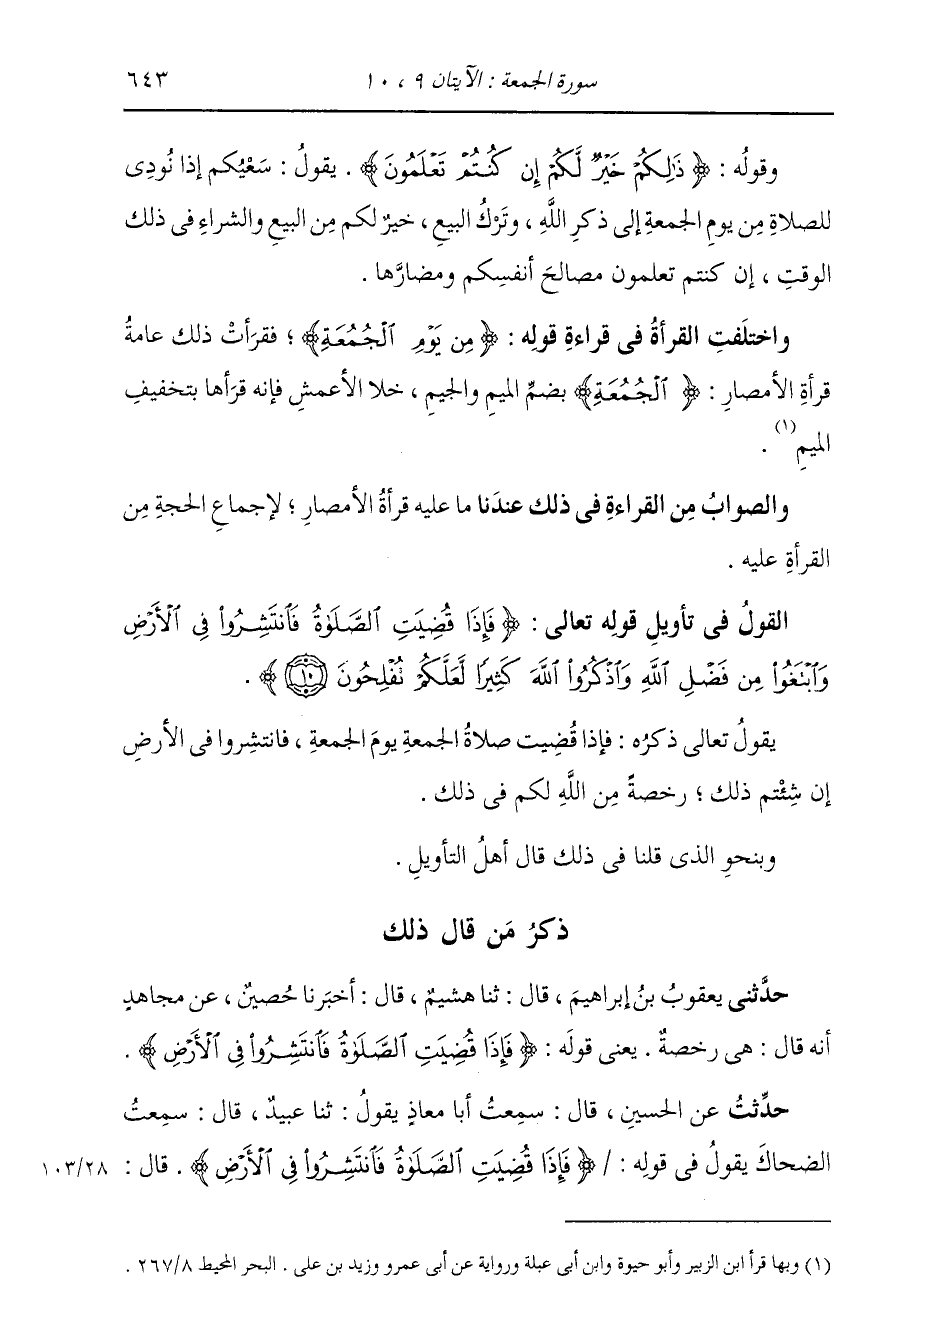 سورة الجمعة : الآيتان ٩ ، ١٠ ٦٤٣
وقولُه : ﴿ ذَٰلِكُمْ خَيْرٌ لَّكُمْ إِن كُنتُمْ تَعْلَمُونَ ﴾ . يقولُ : سَعْيُكم إذا نُودِى
للصلاةِ مِن يومِ الجمعةِ إلى ذكرِ اللَّهِ ، وتَرْكُ البيعِ ، خيرٌ لكم مِن البيعِ والشراءِ فى ذلك
الوقتِ ، إن كنتم تعلمون مصالحَ أنفسِكم ومضارَّها .
واختلَفتِ القرأةُ فى قراءةِ قولِه : ﴿ مِن يَوْمِ ٱلْجُمُعَةِ ﴾ ؛ فقرَأتْ ذلك عامةُ
قرأةِ الأمصارِ : ﴿ ٱلْجُمُعَةِ ﴾ بضمِّ الميمِ والجيمِ ، خلا الأعمشِ فإنه قرَأها بتخفيفِ
الميمِ (١) .
والصوابُ مِن القراءةِ فى ذلك عندَنا ما عليه قرأةُ الأمصارِ ؛ لإجماعِ الحجةِ مِن
القرأةِ عليه .
القولُ فى تأويلِ قولِه تعالى : ﴿ فَإِذَا قُضِيَتِ ٱلصَّلَوٰةُ فَٱنتَشِرُوا۟ فِى ٱلْأَرْضِ
وَٱبْتَغُوا۟ مِن فَضْلِ ٱللَّهِ وَٱذْكُرُوا۟ ٱللَّهَ كَثِيرًا لَّعَلَّكُمْ تُفْلِحُونَ ١٠ ﴾ .
يقولُ تعالى ذكرُه : فإذا قُضِيت صلاةُ الجمعةِ يومَ الجمعةِ ، فانتشِروا فى الأرضِ
إن شِئْتم ذلك ؛ رخصةً مِن اللَّهِ لكم فى ذلك .
وبنحوِ الذى قلنا فى ذلك قال أهلُ التأويلِ .
ذكرُ مَن قال ذلك
حدَّثنى يعقوبُ بنُ إبراهيمَ ، قال : ثنا هشيمٌ ، قال : أخبَرنا حُصينٌ ، عن مجاهدٍ
أنه قال : هى رخصةٌ . يعنى قولَه : ﴿ فَإِذَا قُضِيَتِ ٱلصَّلَوٰةُ فَٱنتَشِرُوا۟ فِى ٱلْأَرْضِ ﴾ .
حدِّثتُ عن الحسينِ ، قال : سمِعتُ أبا معاذٍ يقولُ : ثنا عبيدٌ ، قال : سمِعتُ
الضحاكَ يقولُ فى قولِه : / ﴿ فَإِذَا قُضِيَتِ ٱلصَّلَوٰةُ فَٱنتَشِرُوا۟ فِى ٱلْأَرْضِ ﴾ . قال : ١٠٣/٢٨
(١) وبها قرأ ابن الزبير وأبو حيوة وابن أبى عبلة ورواية عن أبى عمرو وزيد بن على . البحر المحيط ٢٦٧/٨ .